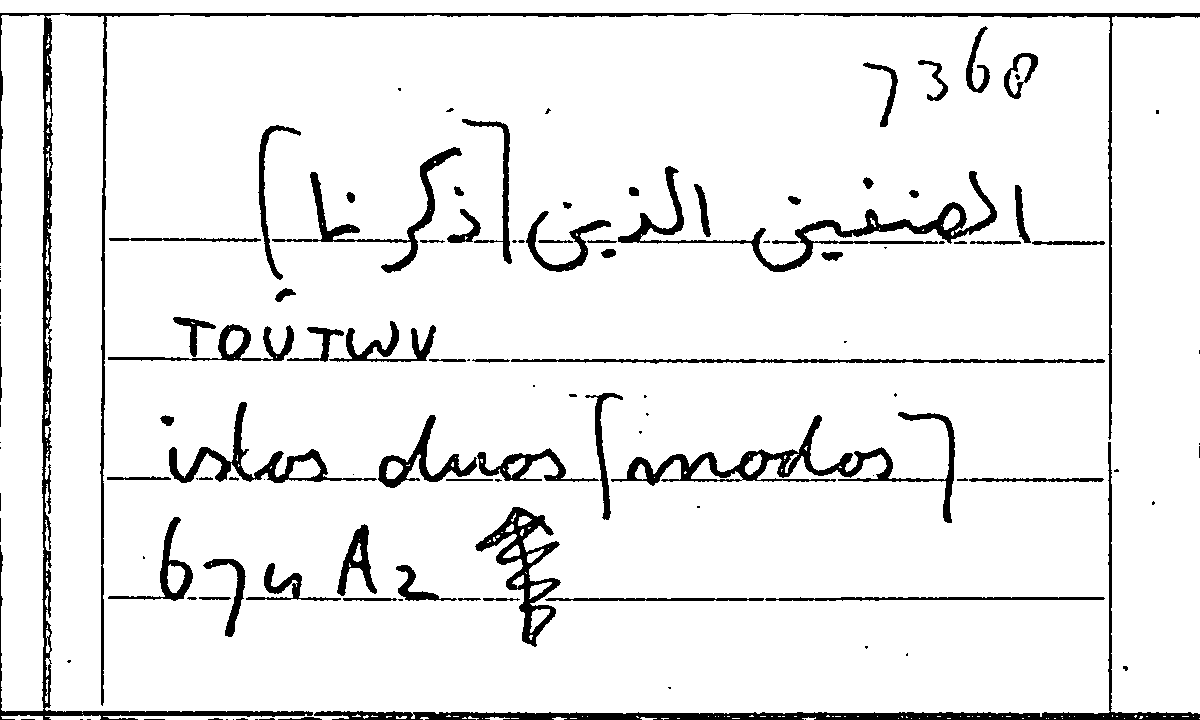 7368
الصنفين الذين [ذكرنا]
τούτων
istos duos [modos]
674 A2